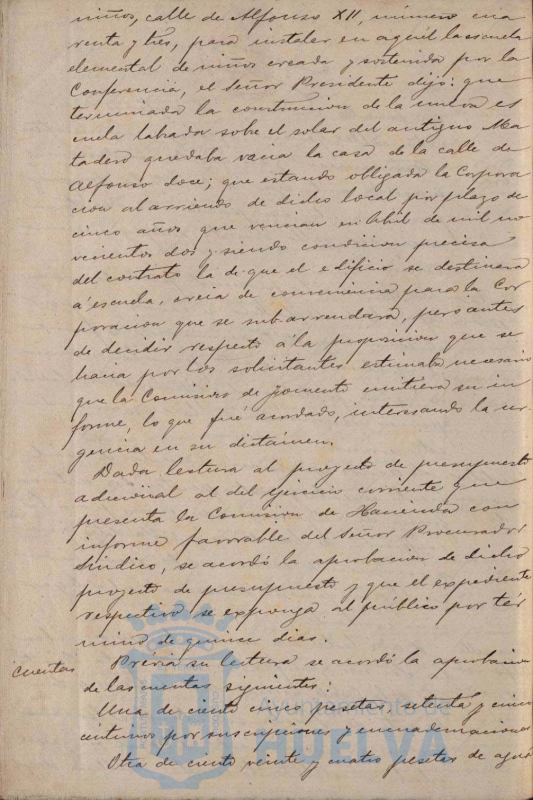 niños, calle de Alfonso XII, número cua
renta y tres, para instalar en aquel la escuela
elemental de niños creada y sostenida por la
Conferencia, el Señor Presidente dijo: que
terminada la construccion de la nueva es
cuela labrada sobre el solar del antiguo Ma
tadero quedaba vacia la casa de la calle de
Alfonso doce; que estando obligada la Corpora
cion al arriendo de dicho local por plazo de
cinco años que vencian en Abril de mil no
vecientos dos y siendo condicion precisa
del contrato la de que el edificio se destinara
á escuela, creia de conveniencia para la Cor
poracion que se subarrendara, pero antes
de decidir respecto á la proposicion que se
hacia por los solicitantes estimaba necesario
que la Comision de fomento emitiera su in
forme, lo que fué acordado, interesando la ur
gencia en su dictámen.
Dada lectura al proyecto de presupuesto
adicional al del ejercicio corriente que
presenta la Comision de Hacienda con
informe favorable del Señor Procurador
Sindico, se acordó la aprobacion de dicho
proyecto de presupuesto y que el expediente
respectivo se exponga al público por tér
mino de quince dias.
Cuentas
Prévia su lectura se acordó la aprobacion
de las cuentas siguientes:
Una de ciento cinco pesetas, setenta y cinco
centimos por suscripciones y encuadernaciones
Otra de ciento veinte y cuatro pesetas de agua
HUELVA